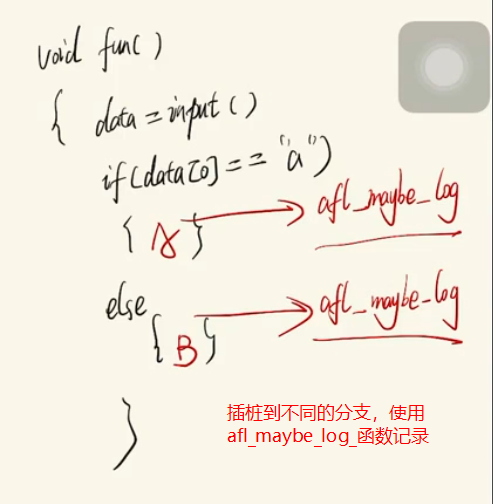 void func()
{ data = input()
if(data[0] == "a")
{ A } → afl_maybe_log
else
{ B } → afl_maybe_log
}
插桩到不同的分支，使用
afl_maybe_log_函数记录